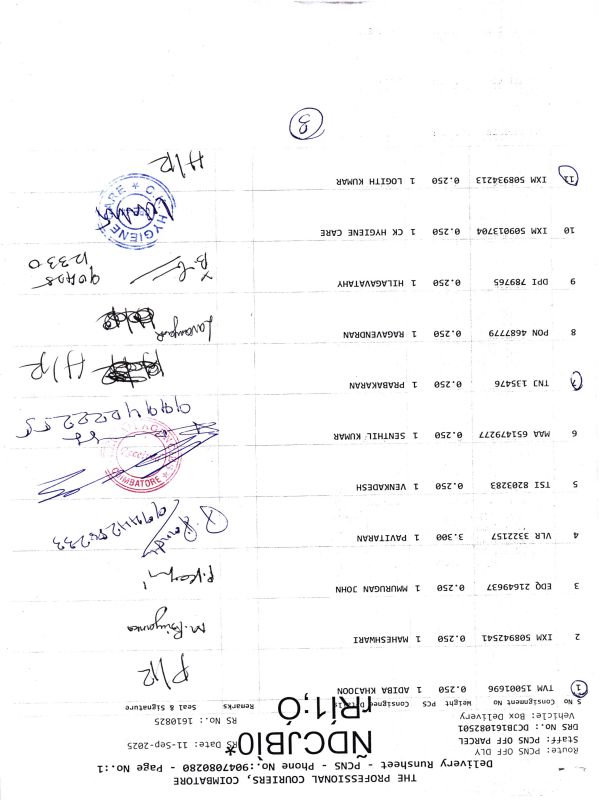 THE PROFESSIONAL COURIERS, COIMBATORE
Delivery Runsheet - PCNS - Phone No.:9047080280 - Page No.:1
Route: PCNS OFF DLY
Staff: PCNS OFF PARCEL
DRS No.: DCJB161082501
Vehicle: Box Delivery
ÑDCJBÌ0*
rRÍ1;Ó
DRS Date: 11-Sep-2025
RS No.: 1610825
S No Consignment No Weight PCS Consignee Details Remarks Seal & Signature
1 TVM 15001696 0.250 1 ADIBA KHAJOON P/12
2 IXM 508942541 0.250 1 MAHESHWARI M. Priyanka
3 EDQ 21649637 0.250 1 MMURUGAN JOHN
4 VLR 3322157 3.300 1 PAVITARAN
5 TSI 8203283 0.250 1 VENKADESH
COIMBATORE
6 MAA 651479277 0.250 1 SENTHIL KUMAR 9994022255
7 TNJ 135476 0.250 1 PRABAKARAN H/12
8 PON 4687779 0.250 1 RAGAVENDRAN
9 DPI 789765 0.250 1 HILAGAVATAHY
10 IXM 509013704 0.250 1 CK HYGIENE CARE
C.K HYGIENE CARE
11 IXM 508934213 0.250 1 LOGITH KUMAR H/12